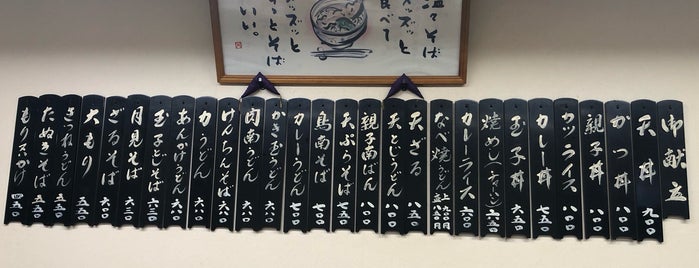 温てそば
ズズッと
食べて
ズズッと
いとそば
いい。
御献立
天丼 九〇〇
かつ丼 八五〇
親子丼 八〇〇
カツライス 八〇〇
カレー丼 七五〇
玉子丼 六八〇
焼めし(チャーハン) 六五〇
カレーライス 六〇〇
なべ焼うどん 上九〇〇円 並八五〇円
天ざる 八五〇
天とじうどん 八〇〇
親子南ばん 八〇〇
天ぷらそば 七五〇
鳥南そば 七〇〇
カレーうどん 七〇〇
かき玉うどん 六八〇
肉南うどん 六八〇
けんちんそば 六八〇
力うどん 六八〇
あんかけうどん 六八〇
玉子とじそば 六三〇
月見そば 六三〇
ざるそば 六〇〇
大もり 五五〇
きつねうどん 五五〇
たぬきそば 五五〇
もりかけ 四五〇